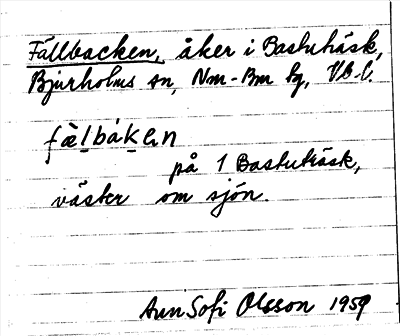 Fällbacken, åker i Bastuträsk,
Bjurholms sn, Nm-Bm tg, Vb l.
fä̀lbákan
på 1 Bastuträsk,
väster om sjön.
Ann Sofi Olsson 1959